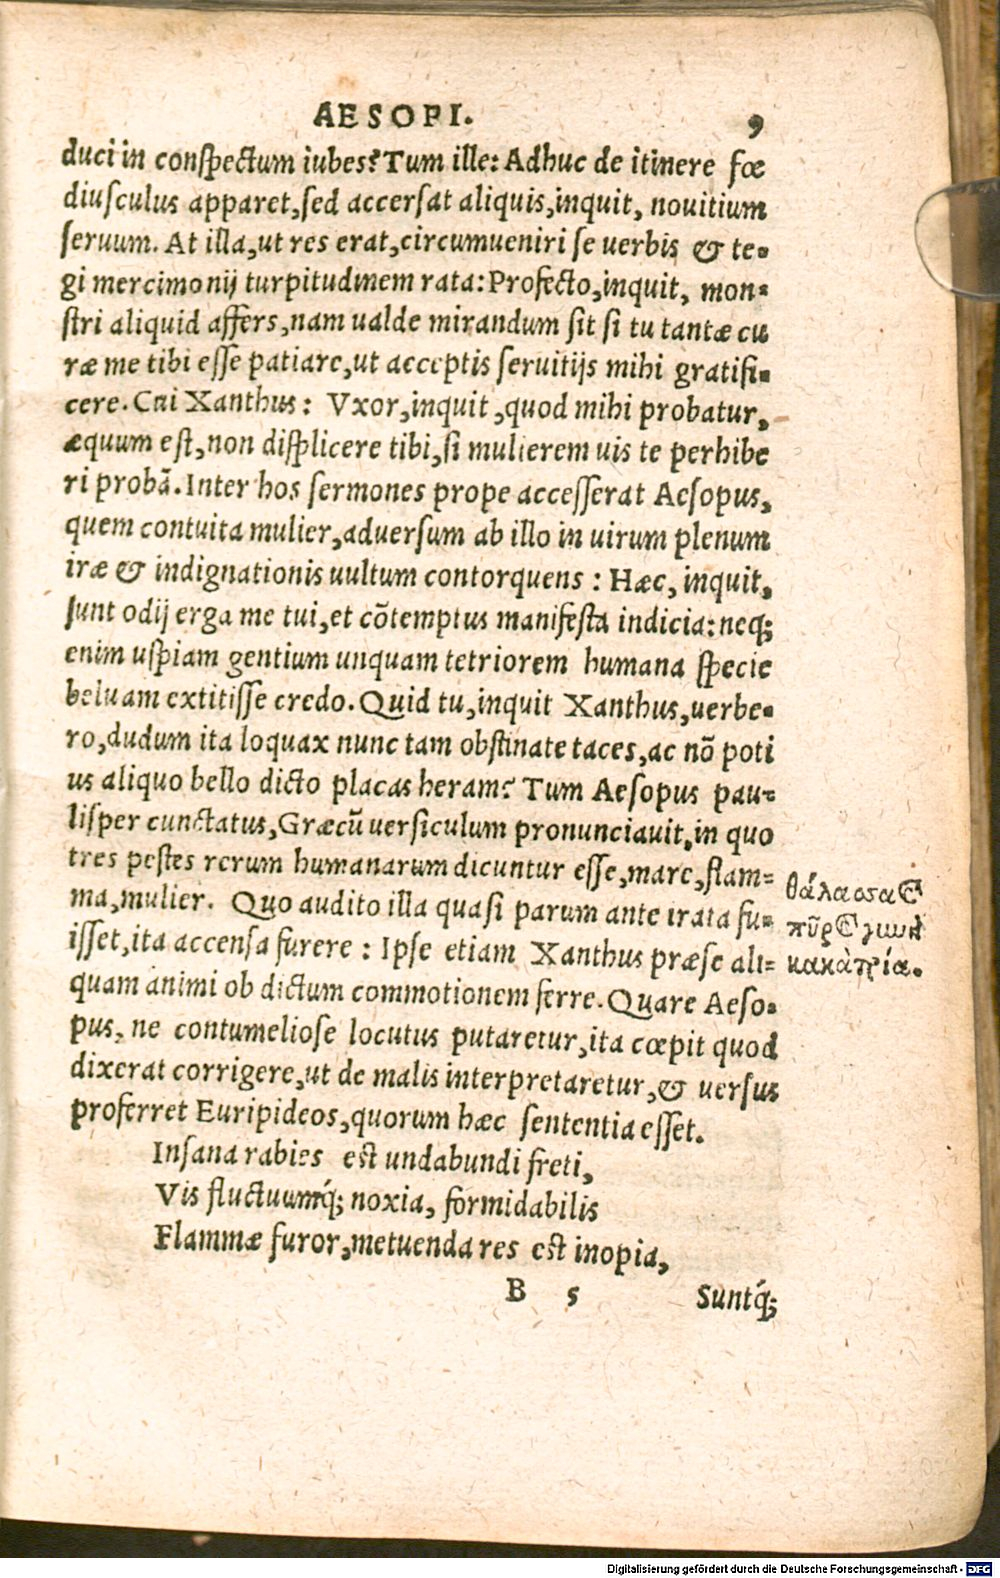 AESOPI. 9
duci in conspectum iubes? Tum ille: Adhuc de itinere fœ
diusculus apparet, sed accersat aliquis, inquit, nouitium
seruum. At illa, ut res erat, circumueniri se uerbis & te-
gi mercimonij turpitudinem rata: Profecto, inquit, mon-
stri aliquid affers, nam ualde mirandum sit si tu tantæ cu
ræ me tibi esse patiare, ut acceptis seruitijs mihi gratifi-
cere. Cui Xanthus: Vxor, inquit, quod mihi probatur,
æquum est, non displicere tibi, si mulierem uis te perhibe
ri probã. Inter hos sermones prope accesserat Aesopus,
quem contuita mulier, aduersum ab illo in uirum plenum
iræ & indignationis uultum contorquens: Hæc, inquit,
sunt odij erga me tui, et cõtemptus manifesta indicia: neq;
enim uspiam gentium unquam tetriorem humana specie
beluam extitisse credo. Quid tu, inquit Xanthus, uerbe-
ro, dudum ita loquax nunc tam obstinate taces, ac nõ poti
us aliquo bello dicto placas heram? Tum Aesopus pau-
lisper cunctatus, Græcũ uersiculum pronunciauit, in quo
tres pestes rerum humanarum dicuntur esse, mare, flam-
ma, mulier. Quo audito illa quasi parum ante irata fu-
isset, ita accensa furere: Ipse etiam Xanthus præse ali-
quam animi ob dictum commotionem ferre. Quare Aeso-
pus, ne contumeliose locutus putaretur, ita cœpit quod
dixerat corrigere, ut de malis interpretaretur, & uersus
proferret Euripideos, quorum hæc sententia esset.
Insana rabies est undabundi freti,
Vis fluctuumq́; noxia, formidabilis
Flammæ furor, metuenda res est inopia,
B 5 Suntq́;
θάλασσα
πῦρ
κακὰ τρία.
Digitalisierung gefördert durch die Deutsche Forschungsgemeinschaft - DFG